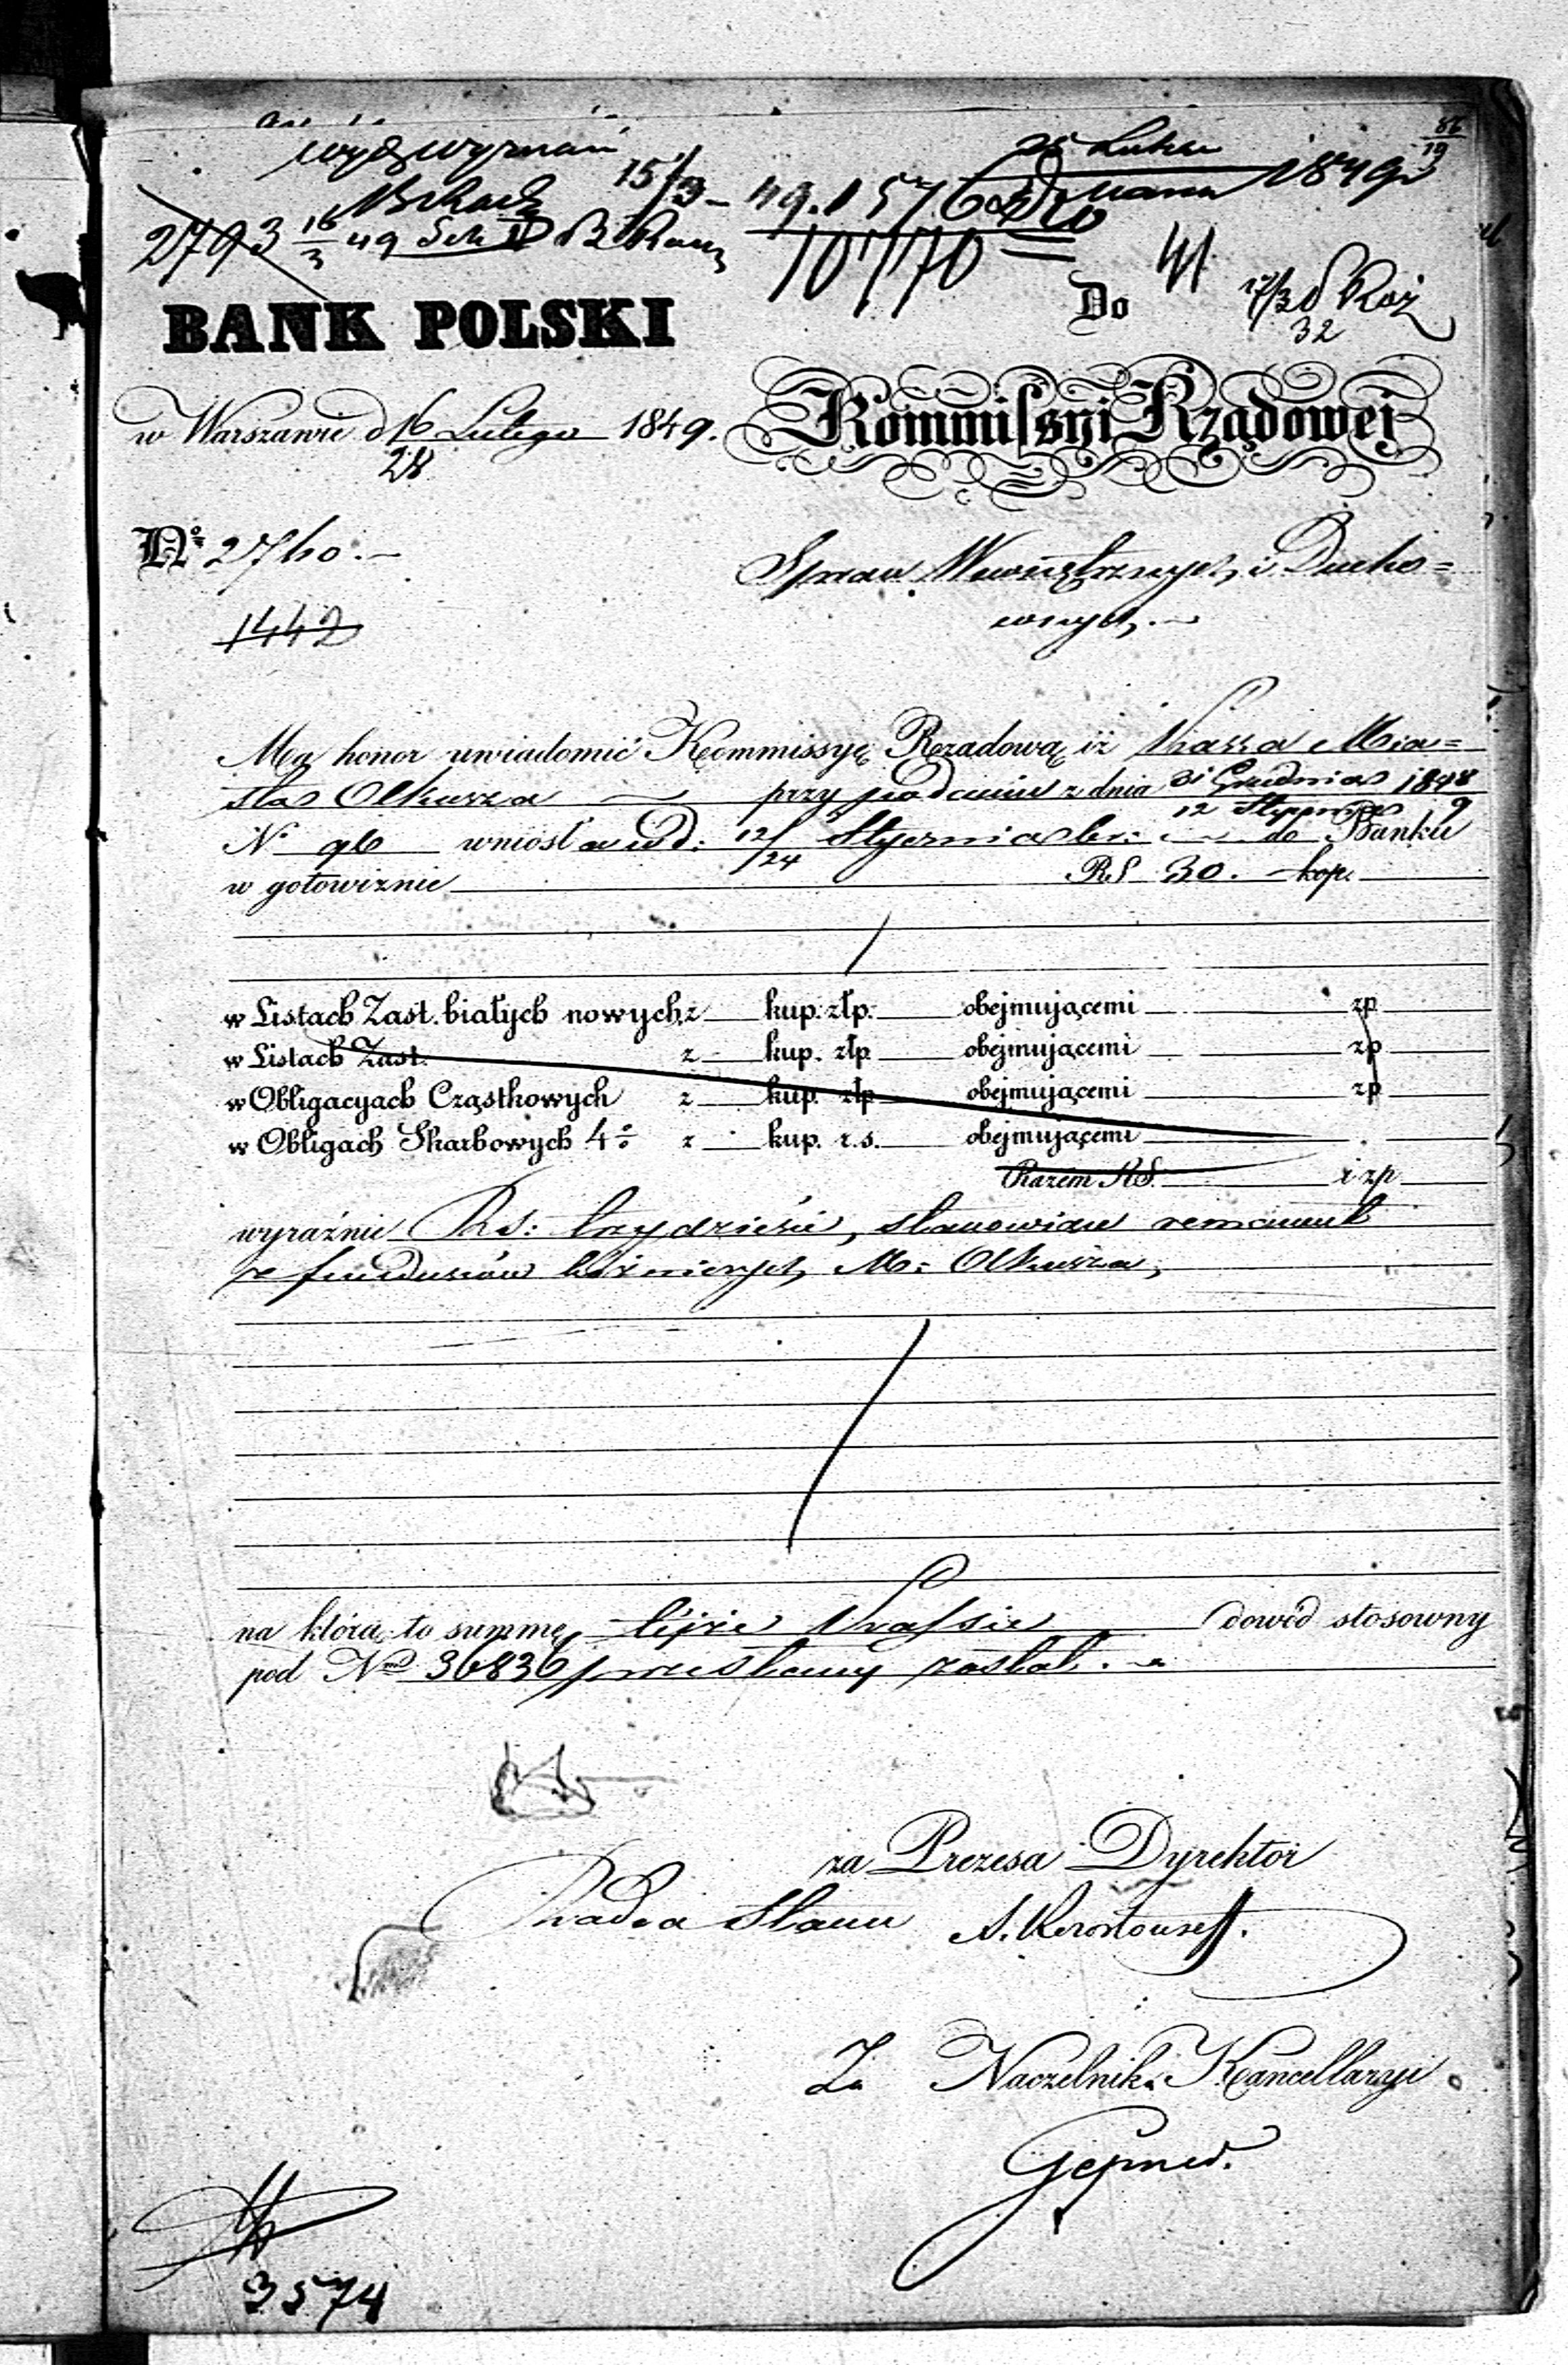 86
19
wydz wyznań
15/3 - 49. 1576
1849
2793 16/3 49 Sek II
10770
41
Do
17/3
32
BANK POLSKI
w Warszawie d 16 Lutego 1849.
28
Kommissyi Rządowej
No 2760.-
1442
Spraw Wewnętrznych i Ducho=
wnych.
Ma honor uwiadomić Kommissyę Rządową iż Kassa Mia=
sta Olkusza przy podaniu z dnia 31 Grudnia 1848
12 Stycznia 9
No 96 wniosła w d: 12/24 Stycznia b.r: do Banku
w gotowiznie RS 30. kop.
w Listach Zast. białych nowych z kup. złp. obejmującemi zp
w Listach Zast. z kup. złp obejmującemi zp
w Obligacyach Cząstkowych z kup. złp obejmującemi zp
w Obligach Skarbowych 4% z kup. r.s. obejmującemi
Razem RS. i zp
wyraźnie Rs: trzydzieści, stanowiące remanent
z funduszów bóżniczych M: Olkusza,
na którą to summę tejże Kassie dowód stosowny
pod No 36836 przesłany został.
za Prezesa Dyrektor
Radca Stanu
Za Naczelnika Kancellaryi
Gepner.
3574